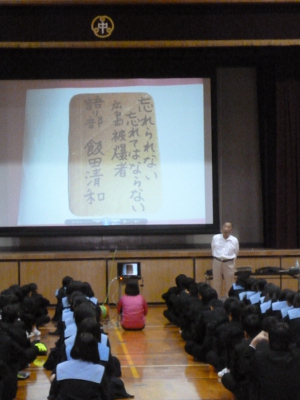 中
忘れられない
忘れてはならない
広島被爆者
語り部 飯田清和